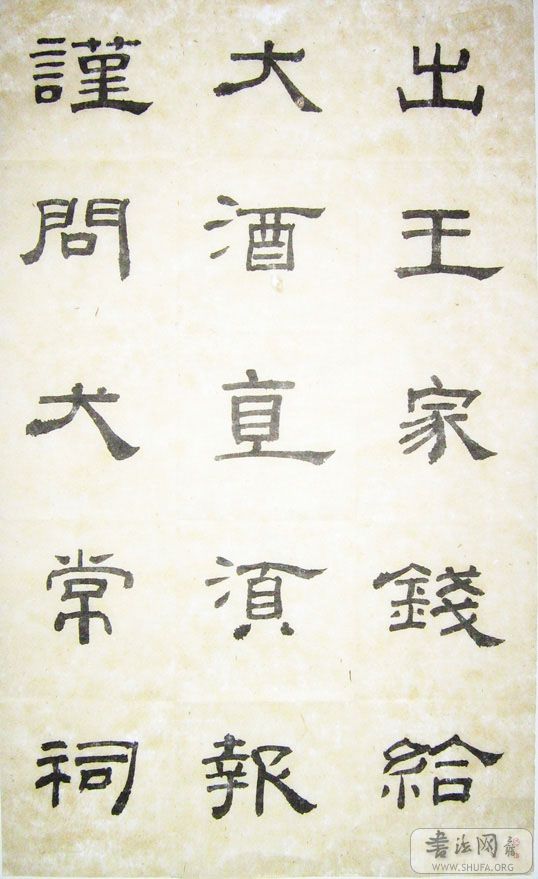 出王家錢給
大酒直湏報
謹問大常祠
書法网
WWW.SHUFA.ORG